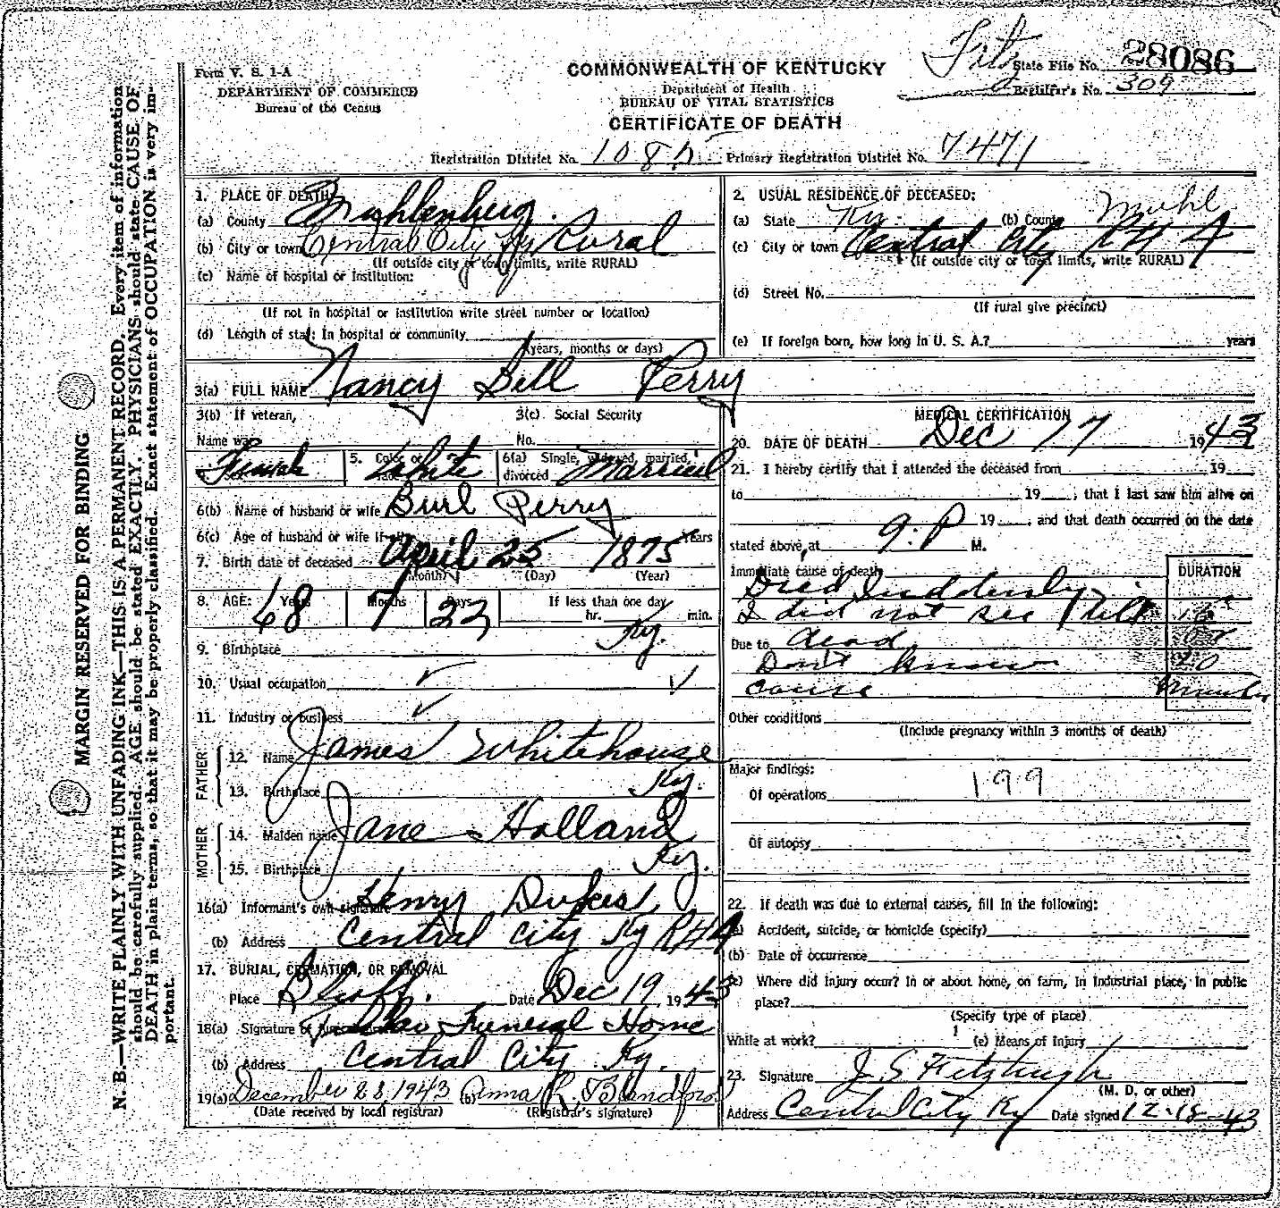 Fitz
State File No. 28086
Registrar's No. 309
Form V. S. 1-A
DEPARTMENT OF COMMERCE
Bureau of the Census
COMMONWEALTH OF KENTUCKY
Department of Health
BUREAU OF VITAL STATISTICS
CERTIFICATE OF DEATH
Registration District No. 1085 Primary Registration District No. 7471
MARGIN RESERVED FOR BINDING
N. B.—WRITE PLAINLY WITH UNFADING INK—THIS IS A PERMANENT RECORD. Every item of information
should be carefully supplied. AGE should be stated EXACTLY. PHYSICIANS should state CAUSE OF
DEATH in plain terms, so that it may be properly classified. Exact statement of OCCUPATION is very im-
portant.
1. PLACE OF DEATH
(a) County Muhlenberg
(b) City or town Central City Ky Rural
(If outside city or town limits, write RURAL)
(c) Name of hospital or institution:
(If not in hospital or institution write street number or location)
(d) Length of stay: In hospital or community
(years, months or days)
2. USUAL RESIDENCE OF DECEASED:
(a) State Ky. (b) County Muhl
(c) City or town Central City R#4
(If outside city or town limits, write RURAL)
(d) Street No.
(If rural give precinct)
(e) If foreign born, how long in U. S. A.? years
3(a) FULL NAME Nancy Bell Perry
3(b) If veteran,
Name war
3(c). Social Security
No.
Sex Female 5. Color or race White 6(a) Single, widowed, married, divorced Married
6(b) Name of husband or wife Burl Perry
6(c) Age of husband or wife if Years
7. Birth date of deceased April 25 1875
(Month) (Day) (Year)
8. AGE: Years 68 Months 7 Days 22 If less than one day
hr. min.
9. Birthplace Ky.
10. Usual occupation
11. Industry or business
FATHER
12. Name James Whitehouse
13. Birthplace Ky.
MOTHER
14. Maiden name Jane Holland
15. Birthplace Ky.
16(a) Informant's own signature Henry Dukes
(b) Address Central City Ky R#4
17. BURIAL, CREMATION, OR REMOVAL
Place Date Dec 19, 1943
18(a) Signature of Funeral Home
(b) Address Central City Ky.
19(a) December 28, 1943 (b) Anna R. Blandford
(Date received by local registrar) (Registrar's signature)
MEDICAL CERTIFICATION
20. DATE OF DEATH Dec 17 1943
21. I hereby certify that I attended the deceased from 19
to 19 , that I last saw him alive on
19 , and that death occurred on the date
stated above, at 9:P M.
Immediate cause of death
DURATION
Died Suddenly
I did not see till
Due to dead
Don't know
cause
Other conditions
(Include pregnancy within 3 months of death)
Major findings:
Of operations 199
Of autopsy
22. If death was due to external causes, fill in the following:
(a) Accident, suicide, or homicide (specify)
(b) Date of occurrence
(c) Where did injury occur? In or about home, on farm, in industrial place, in public
place?
(Specify type of place)
While at work? (e) Means of Injury
23. Signature J. S Fitzhugh
(M. D. or other)
Address Central City Ky Date signed 12-18-43